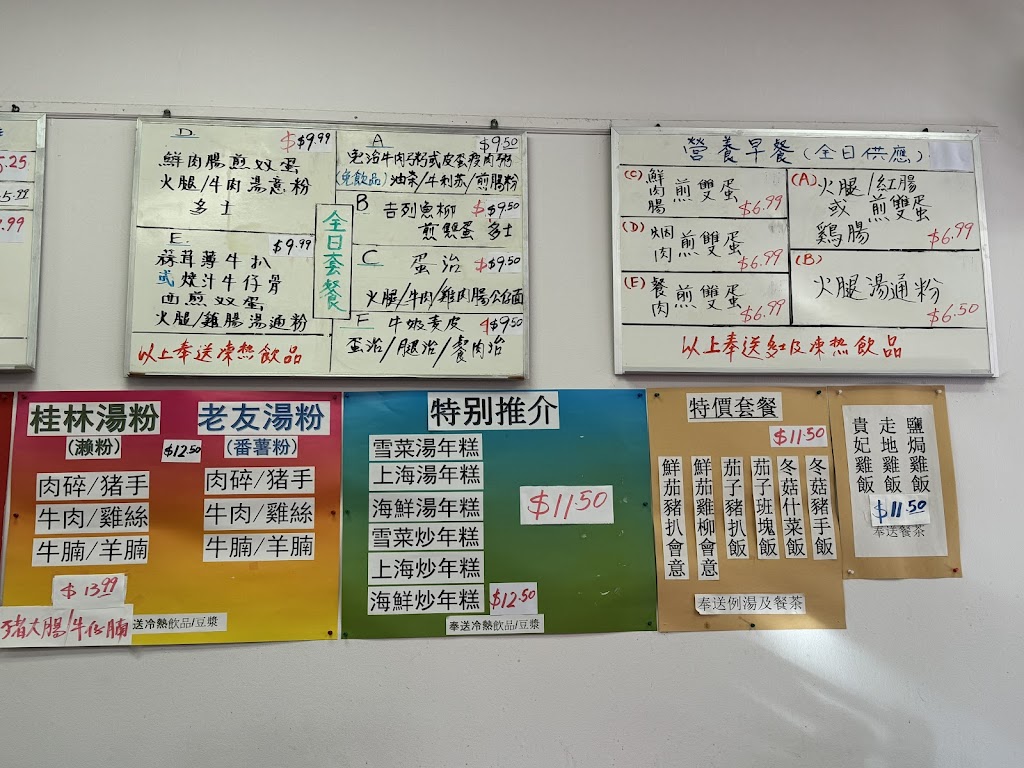 5.25
5.99
.99
D $9.99
鮮肉腸煎双蛋
火腿/牛肉湯意粉
多士
E. $9.99
蒜茸薄牛扒
或燒汁牛仔骨
煎双蛋
火腿/雞腸湯通粉
全日套餐
A $9.50
免治牛肉粥或皮蛋瘦肉粥
(免飲品) 油条/牛利酥/煎腸粉
B 吉列魚柳 $9.50
煎雙蛋 多士
C 蛋治 $9.50
火腿/牛肉/雞肉腸公仔面
F 牛蝦麦皮 $9.50
蛋治/腿治/餐肉治
以上奉送凍熱飲品
營養早餐 (全日供應)
(C) 鮮肉腸 煎雙蛋 $6.99
(D) 烟肉 煎雙蛋 $6.99
(E) 餐肉 煎雙蛋 $6.99
(A) 火腿/紅腸
或 煎雙蛋
鷄腸 $6.99
(B)
火腿湯通粉
$6.50
以上奉送紅及凍热飲品
桂林湯粉
(瀨粉)
$12.50
肉碎/猪手
牛肉/雞絲
牛腩/羊腩
$13.99
猪大腸/牛仔腩
老友湯粉
(番薯粉)
肉碎/猪手
牛肉/雞絲
牛腩/羊腩
送冷熱飲品/豆漿
特别推介
雪菜湯年糕
上海湯年糕
海鮮湯年糕
雪菜炒年糕
上海炒年糕
海鮮炒年糕 $12.50
$11.50
奉送冷熱飲品/豆漿
特價套餐
$11.50
冬菇豬手飯
冬菇什菜飯
茄子班塊飯
茄子豬扒飯
鮮茄雞柳會意
鮮茄豬扒會意
奉送例湯及餐茶
鹽焗雞飯
走地雞飯
貴妃雞飯
$11.50
奉送餐茶